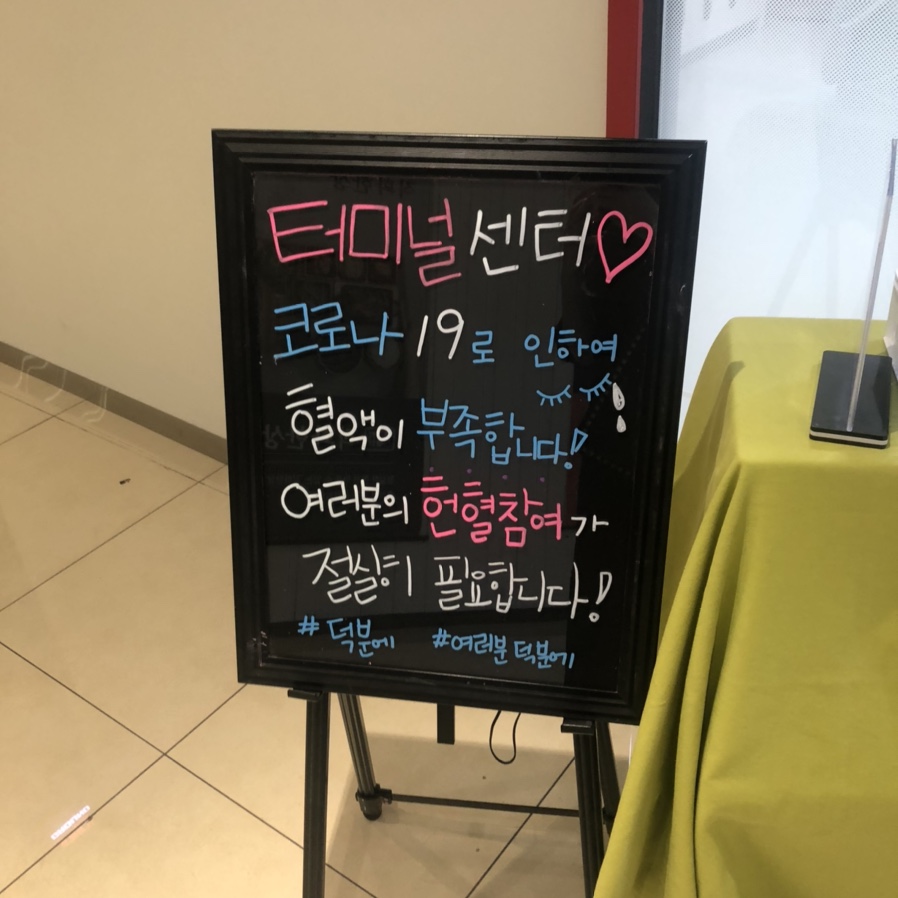 터미널 센터♡
코로나 19로 인하여
혈액이 부족합니다!
여러분의 헌혈참여가
절실히 필요합니다!
#덕분에 #여러분 덕분에